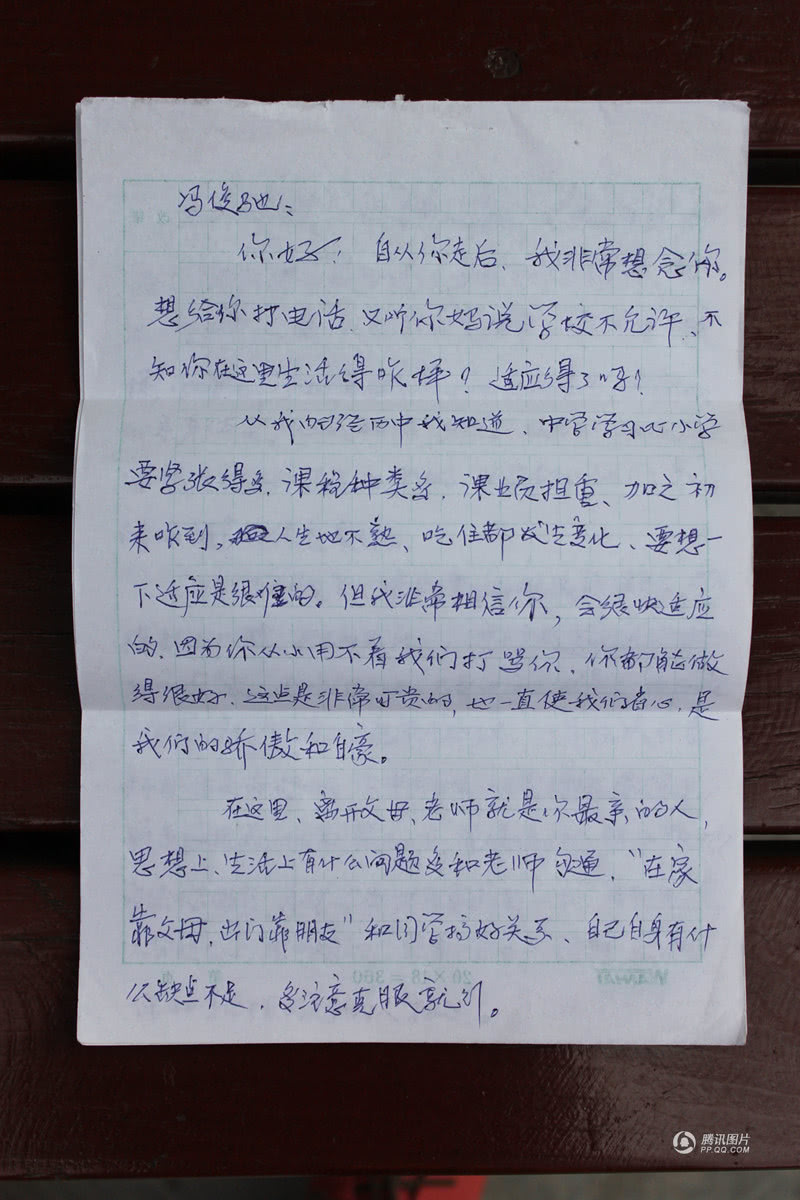 冯俊驰：
你好！自从你走后、我非常想念你。
想给你打电话、又听你妈说学校不允许、不
知你在这里生活得咋样？适应得了吗？
从我的经历中我知道、中学学习比小学
要紧张得多、课程种类多、课业负担重、加之初
来咋到，人生地不熟、吃住都发生变化、要想一
下适应是很难的。但我非常相信你，会很快适应
的、因为你从小用不着我们打骂你、你都能做
得很好、这点是非常可贵的，也一直使我们省心，是
我们的骄傲和自豪。
在这里、离开父母、老师就是你最亲的人，
思想上、生活上有什么问题多和老师勾通，“在家
靠父母，出门靠朋友”和同学搞好关系、自己自身有什
么缺点不足，多注意克服就行。
20×18=360
腾讯图片
PP.QQ.COM